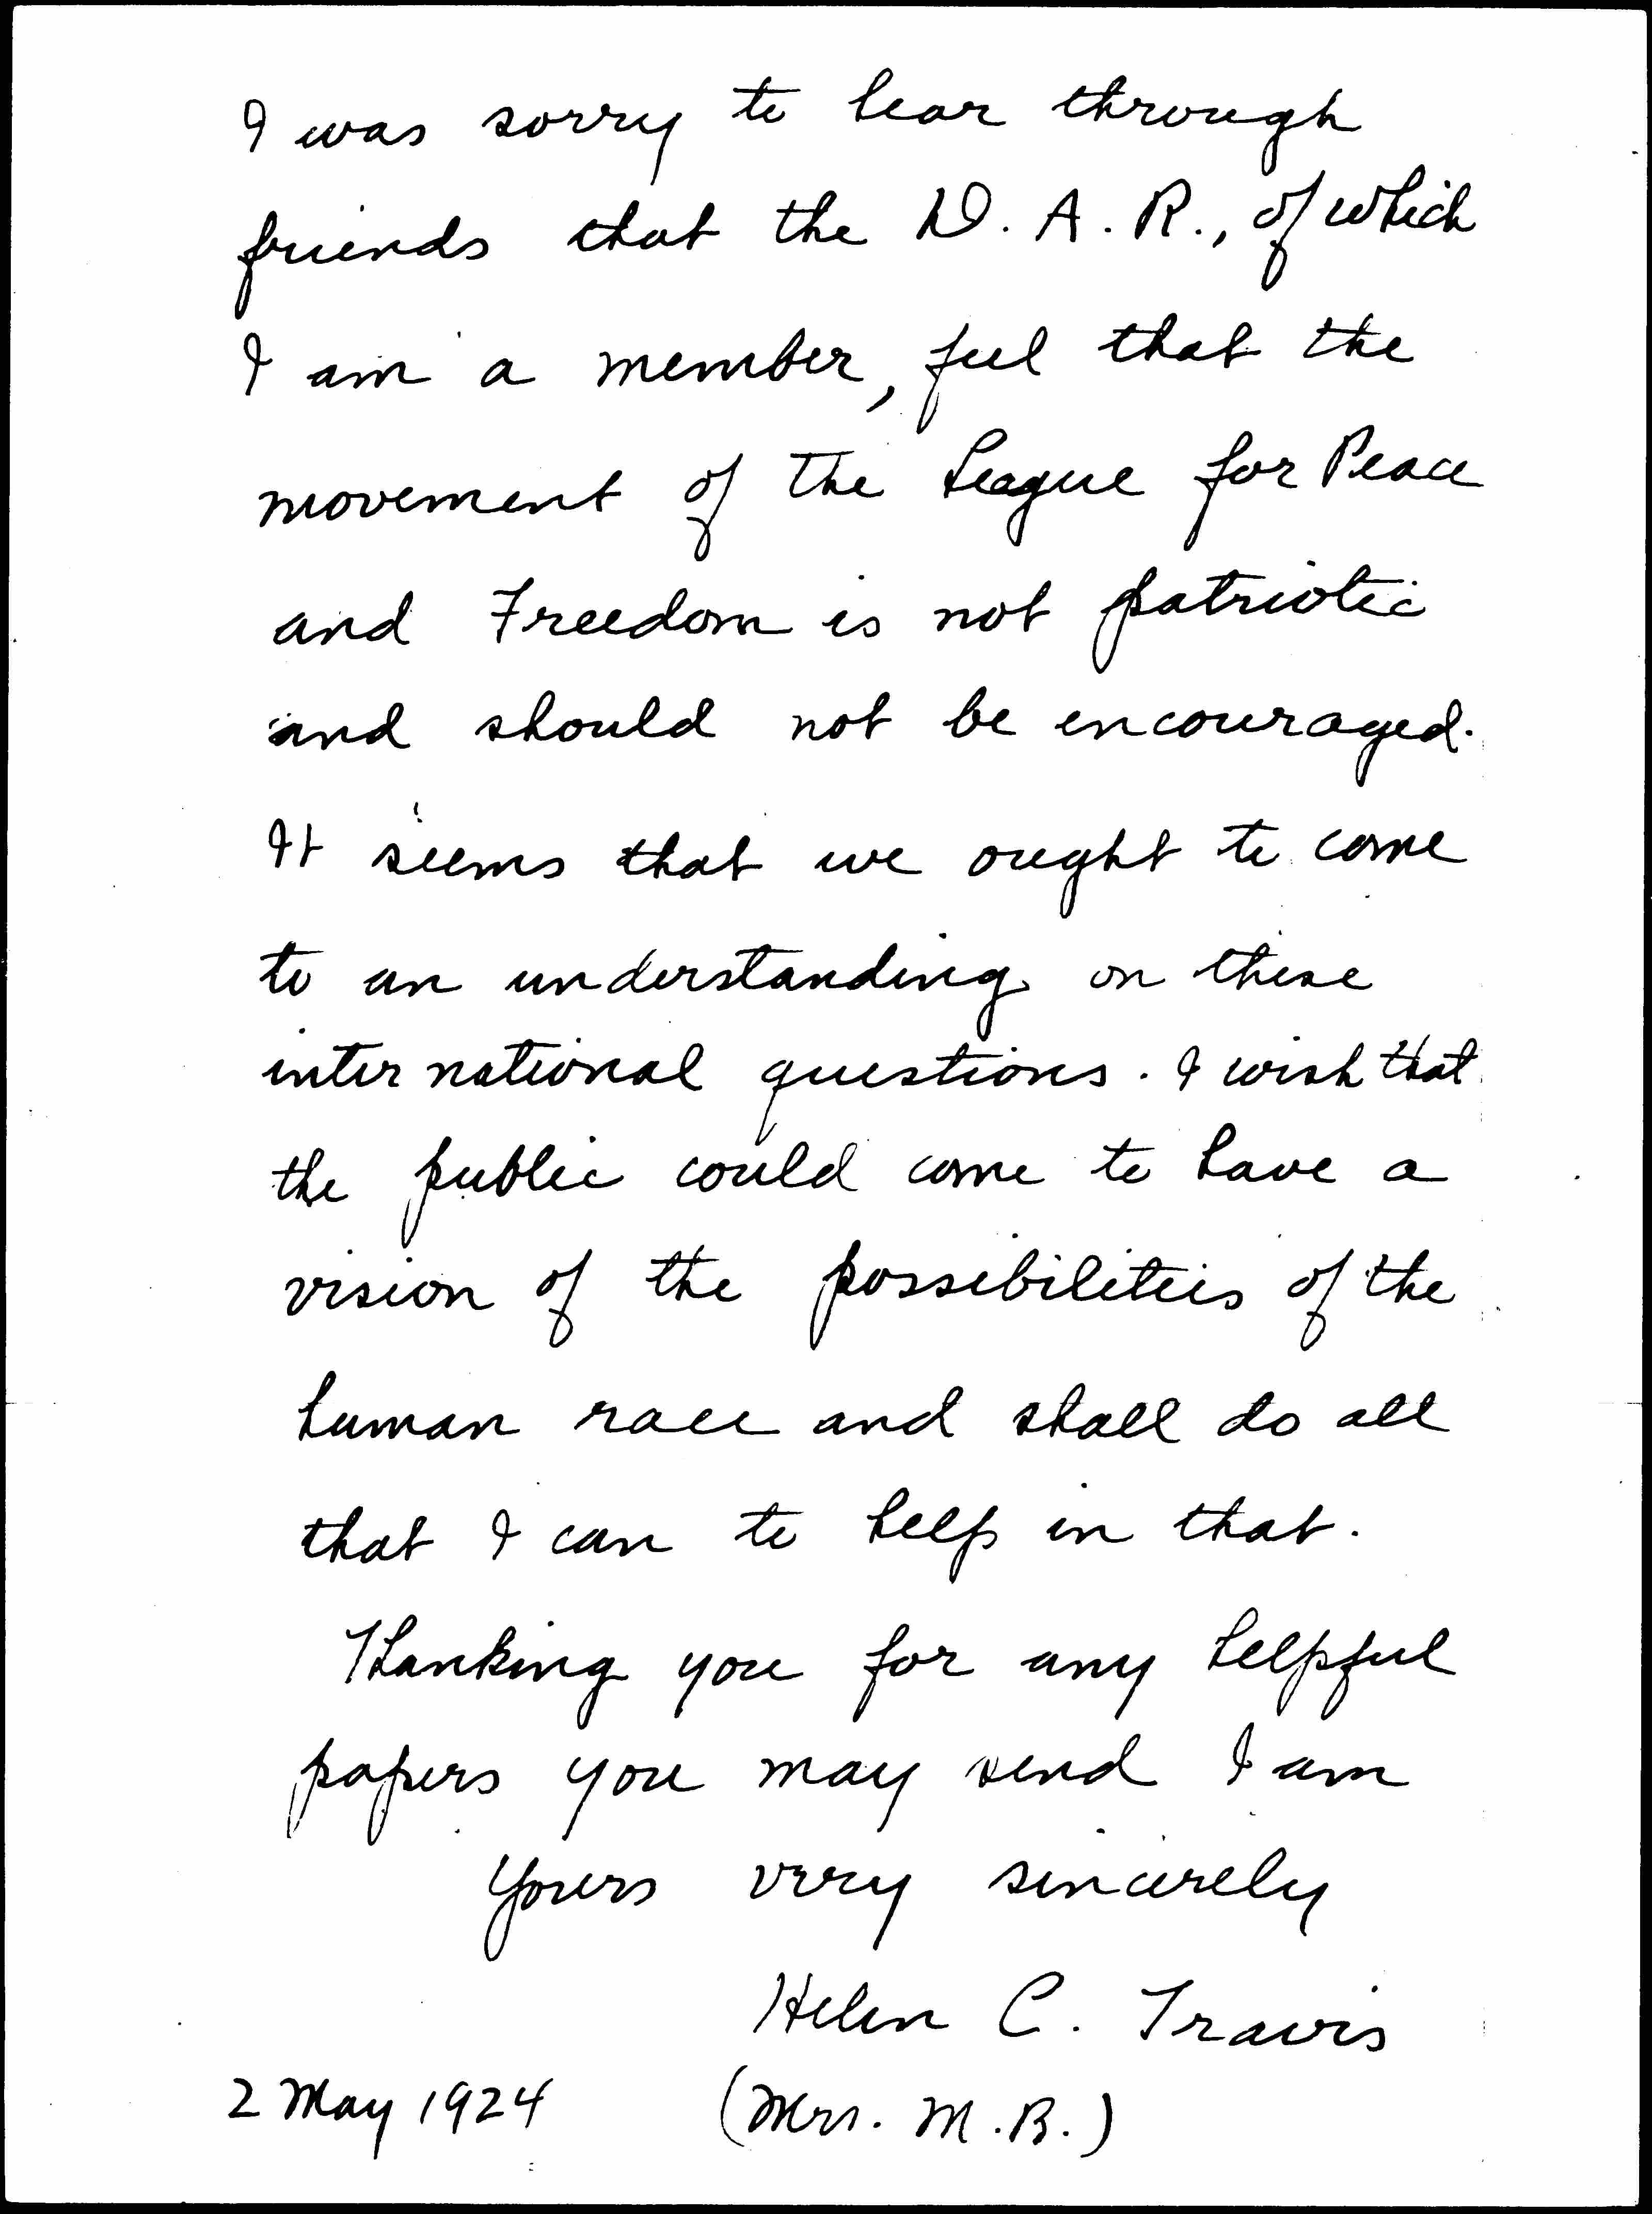 I was sorry to hear through
friends that the D. A. R., of which
I am a member, feel that the
movement of the League for Peace
and Freedom is not patriotic
and should not be encouraged.
It seems that we ought to come
to an understanding on these
international questions. I wish that
the public could come to have a
vision of the possibilities of the
human race and shall do all
that I can to help in that.
Thanking you for any helpful
papers you may send I am
Yours very sincerely
Helen C. Travis
2 May 1924 (Mrs. M. B.)